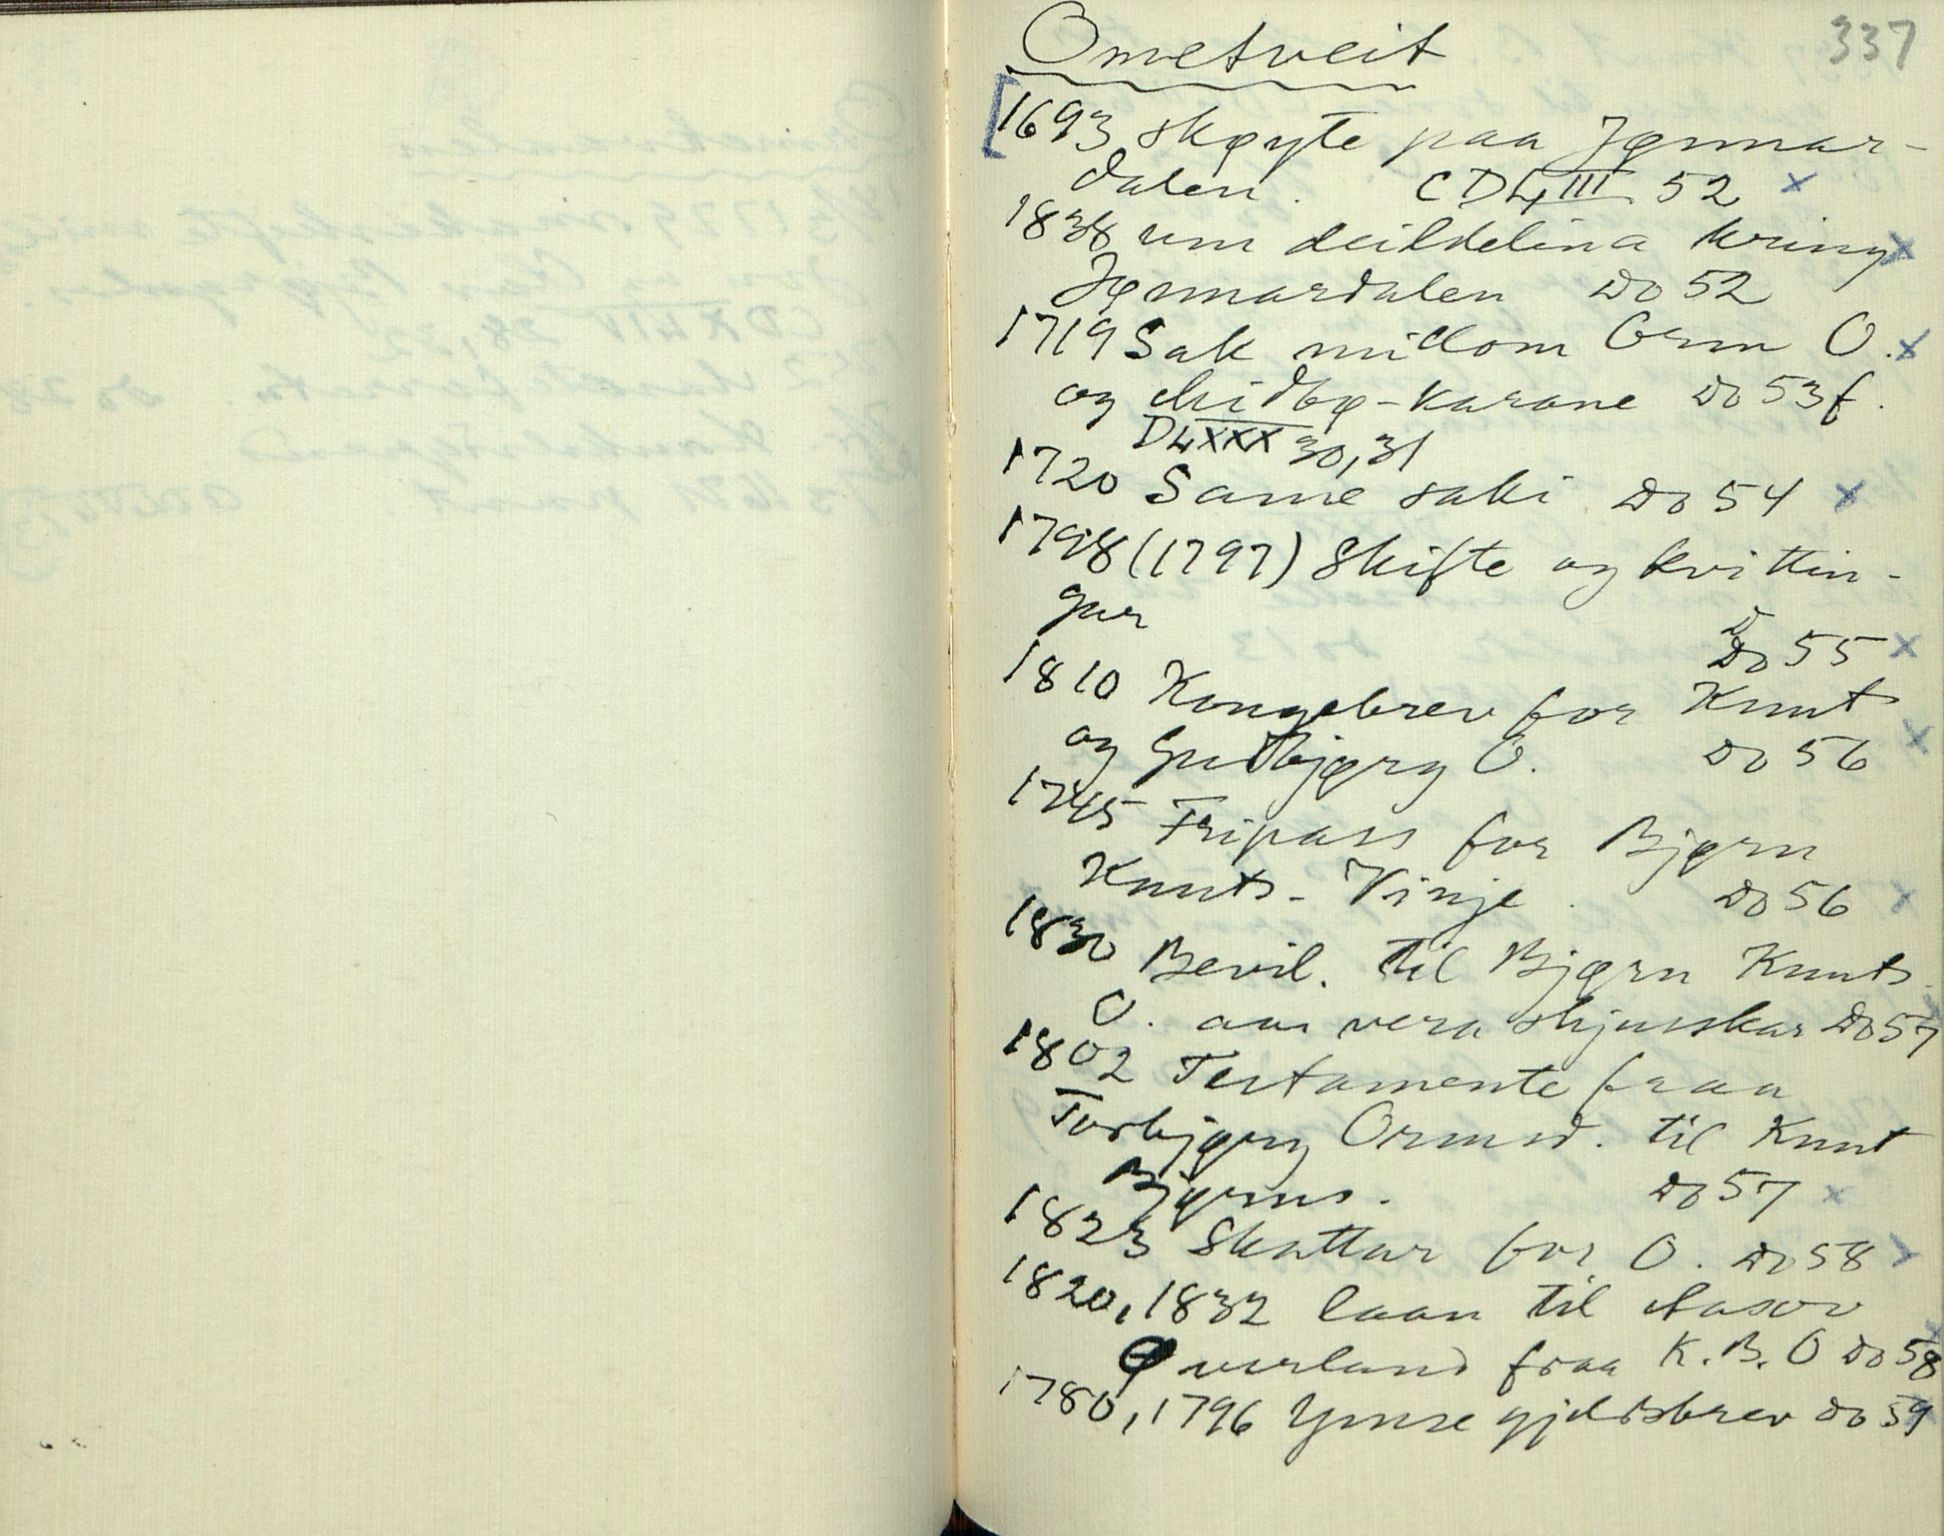 337
Ometveit
[1693 skøyte paa Jønnar-
dalen. CD4III 52 x
1838 um deildelina kring x
Jønnardalen Do 52
1719 Sak millom Orm O. x
og Midbø-karane Do 53f.
D4XXX 30, 31
1720 Same saki Do 54 x
1798 (1797) Skifte og kvittin-
gar Do 55 x
1810 Kongebrev for Knut
og Gudbjørg O. Do 56 x
1745 Fripass for Bjørn
Knuts. Vinje. Do 56 x
1830 Bevil. til Bjørn Knuts.
O. aa vera skjusskar Do 57
1802 Testamente fraa
Torbjørg Ormsd. til Knut
Bjørns. Do 57 x
1823 Skattar for O. Do 58 x
1820, 1832 laan til Aasov
Øverland fraa K. B. O Do 58
1780, 1796 Ymse gjeldsbrev Do 59